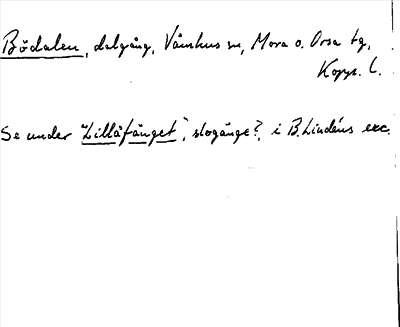 Bödalen, dalgång, Våmhus sn, Mora o. Orsa tg,
Kopp. l.
Se under "Lillåfänget", slogänge?, i B. Lindéns exc.